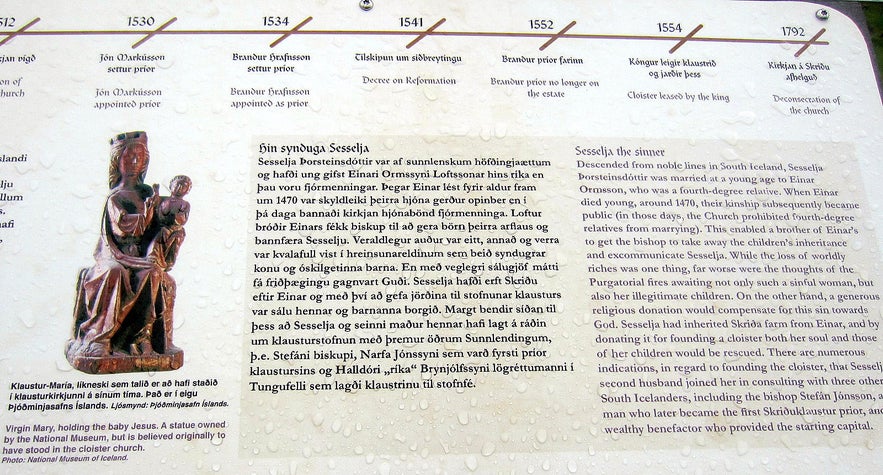 1512
1530
1534
1541
1552
1554
1792
kjan vígð
Jón Markússon
settur príor
Brandur Hrafnsson
settur príor
Tilskipun um siðbreytingu
Brandur príor farinn
Kóngur leigir klaustrið
og jarðir þess
Kirkjan á Skriðu
afhelguð
on of
church
Jón Markússon
appointed prior
Brandur Hrafnsson
appointed as prior
Decree on Reformation
Brandur prior no longer on
the estate
Cloister leased by the king
Deconsecration of
the church
Hin synduga Sesselja
Sesselja Þorsteinsdóttir var af sunnlenskum höfðingjaættum
og hafði ung gifst Einari Ormssyni Loftssonar hins ríka en
þau voru fjórmenningar. Þegar Einar lést fyrir aldur fram
um 1470 var skyldleiki þeirra hjóna gerður opinber en í
þá daga bannaði kirkjan hjónabönd fjórmenninga. Loftur
bróðir Einars fékk biskup til að gera börn þeirra arflaus og
bannfæra Sesselju. Veraldlegur auður var eitt, annað og verra
var kvalafull vist í hreinsunareldinum sem beið syndugrar
konu og óskilgetinna barna. En með veglegri sálugjöf mátti
fá friðþægingu gagnvart Guði. Sesselja hafði erft Skriðu
eftir Einar og með því að gefa jörðina til stofnunar klausturs
var sálu hennar og barnanna borgið. Margt bendir síðan til
þess að Sesselja og seinni maður hennar hafi lagt á ráðin
um klausturstofnun með þremur öðrum Sunnlendingum,
þ.e. Stefáni biskupi, Narfa Jónssyni sem varð fyrsti príor
klaustursins og Halldóri „ríka“ Brynjólfssyni lögréttumanni í
Tungufelli sem lagði klaustrinu til stofnfé.
Sesselja the sinner
Descended from noble lines in South Iceland, Sesselja
Þorsteinsdóttir was married at a young age to Einar
Ormsson, who was a fourth-degree relative. When Einar
died young, around 1470, their kinship subsequently became
public (in those days, the Church prohibited fourth-degree
relatives from marrying). This enabled a brother of Einar's
to get the bishop to take away the children's inheritance
and excommunicate Sesselja. While the loss of worldly
riches was one thing, far worse were the thoughts of the
Purgatorial fires awaiting not only such a sinful woman, but
also her illegitimate children. On the other hand, a generous
religious donation would compensate for this sin towards
God. Sesselja had inherited Skriða farm from Einar, and by
donating it for founding a cloister both her soul and those
of her children would be rescued. There are numerous
indications, in regard to founding the cloister, that Sesselj
second husband joined her in consulting with three other
South Icelanders, including the bishop Stefán Jónsson, a
man who later became the first Skriðuklaustur prior, and
wealthy benefactor who provided the starting capital.
slandi
elju
ellu
s.
afi
Klaustur-María, líkneski sem talið er að hafi staðið
í klausturkirkjunni á sínum tíma. Það er í eigu
Þjóðminjasafns Íslands. Ljósmynd: Þjóðminjasafn Íslands.
Virgin Mary, holding the baby Jesus. A statue owned
by the National Museum, but is believed originally to
have stood in the cloister church.
Photo: National Museum of Iceland.